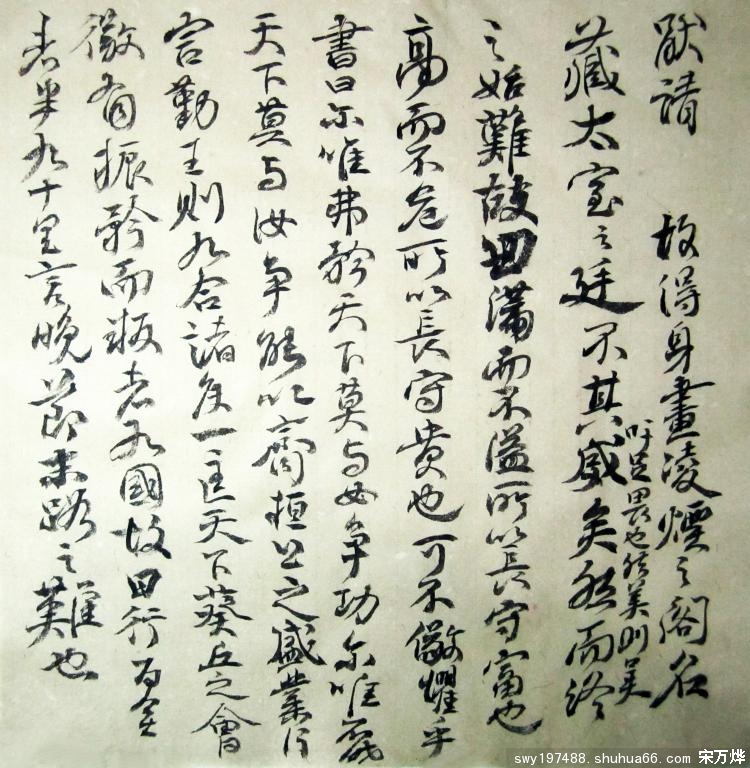 猷諸 故得身畫凌煙之閣名
吁足畏也然美則美
藏太室之廷不其盛矣然而終
之始難故曰滿而不溢所以長守富也
高而不危所以長守貴也可不儆懼乎
書曰尔唯弗矜天下莫与汝爭功尔唯不伐
天下莫与汝爭能以齊桓公之盛業片
言勤王則九合諸侯一匡天下葵丘之會
微有振矜而叛者九國故曰行百里
者半九十里言晚節末路之難也
swy197488.shuhua66.com 宋万烨